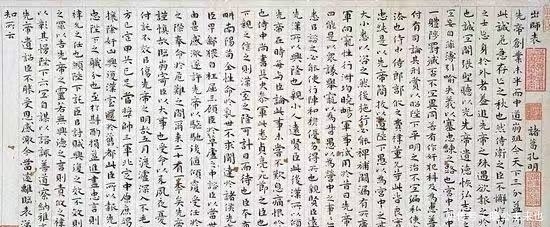 出師表 諸葛孔明
先帝創業未半而中道崩殂今天下三分益
急存亡之秋也然侍衛之臣不懈
之士忘身於外者蓋追先帝之殊遇欲報之於
也誠宜開張聖聽以光先帝遺德恢弘志士
宜妄自菲薄引喻失義以塞忠諫之路也宮中
一體陟罰臧否不宜異同若有作奸犯科及為忠善
付有司論其刑賞以昭陛下平明之治不宜偏私使
法也侍中侍郎郭攸之費禕董允等此皆良實
忠純是以先帝簡拔以遺陛下愚以為宮中之事
大小悉以咨之然後施行必能裨補闕漏有所廣
軍向寵性行淑均曉暢軍事試用於昔日先帝
曰能是以眾議舉寵以為督愚以為營中之事
悉以咨之必能使行陣和穆優劣得所也親賢臣
所以興隆也親小人遠賢臣此後漢所以傾頹也
先帝在時每與臣論此事未嘗不歎息痛恨於
也侍中尚書長史參軍此悉貞亮死節之臣也
之信之則漢室之隆可計日而待也臣本布衣
南陽苟全性命於亂世不求聞達於諸侯先
臣卑鄙猥自枉屈三顧臣於草廬之中諮臣以當世
由是感激遂許先帝以驅馳後值傾覆受任於
之際奉命於危難之間爾來二十有一年矣先帝
謹慎故臨崩寄臣以大事也受命以來夙夜憂
付託不效以傷先帝之明故五月渡瀘深入不毛
方已定甲兵已足當獎帥三軍北定中原庶竭
攘除姦凶興復漢室還於舊都此臣所以報先
忠陛下之職分也至於斟酌損益進盡忠言
禕允之任也願陛下託臣以討賊興復之效不效
之罪以告先帝之靈若無興德之言則責攸之禕
以彰其慢陛下亦宜自謀以諮諏善道察納雅
先帝遺詔臣不勝受恩感激今當遠離臨表涕
知所云